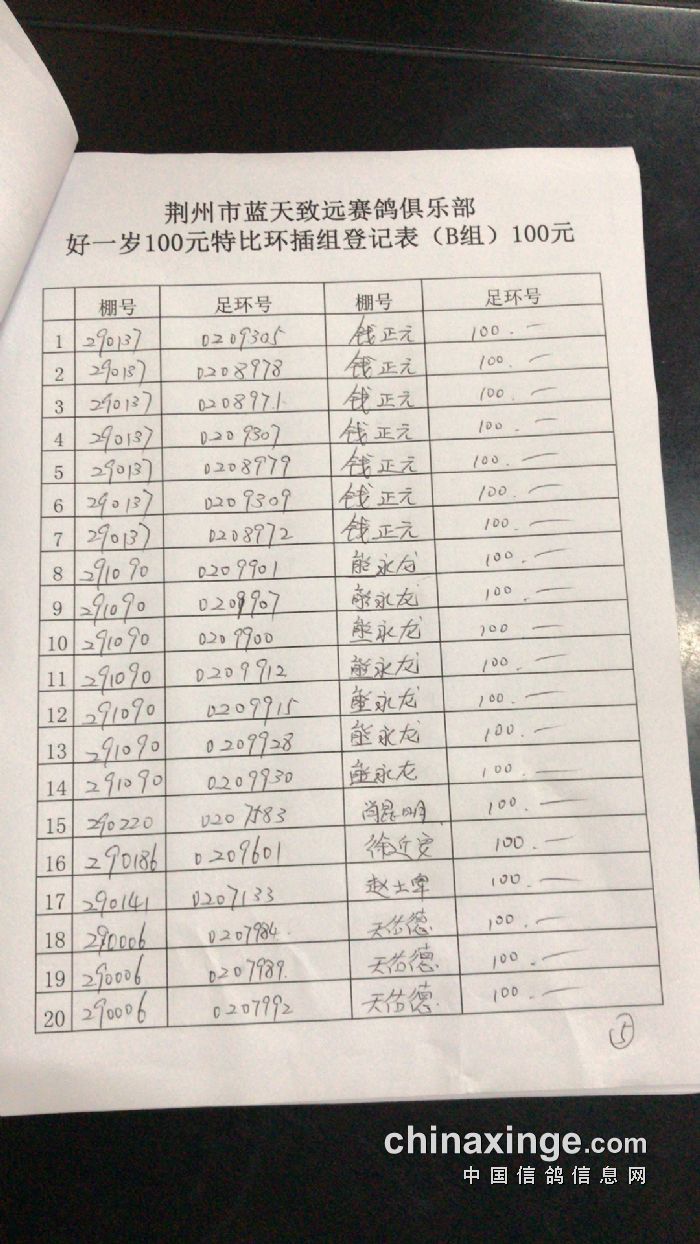 荆州市蓝天致远赛鸽俱乐部
好一岁100元特比环插组登记表（B组）100元
棚号 足环号 棚号 足环号
1 290137 0209305 钱正元 100.一
2 290137 0208978 钱正元 100.一
3 290137 0208971. 钱正元 100.一
4 290137 0209307 钱正元 100.一
5 290137 0208979 钱正元 100.一
6 290137 0209309 钱正元 100.一
7 290137 0208972 钱正元 100.一
8 291090 0209901 熊永龙 100.一
9 291090 0209907 熊永龙 100.一
10 291090 0209900 熊永龙 100.一
11 291090 0209912 熊永龙 100.一
12 291090 0209915 熊永龙 100.一
13 291090 0209928 熊永龙 100.一
14 291090 0209930 熊永龙 100.一
15 290220 肖昆明 100.一
16 290186 0209601 徐近安 100.一
17 290141 0207133 赵士军 100.一
18 290006 0207984. 天佑德 100.一
19 290006 0207989. 天佑德 100.一
20 290006 0207992 天佑德 100.一
⑤
chinaxinge.com
中国信鸽信息网